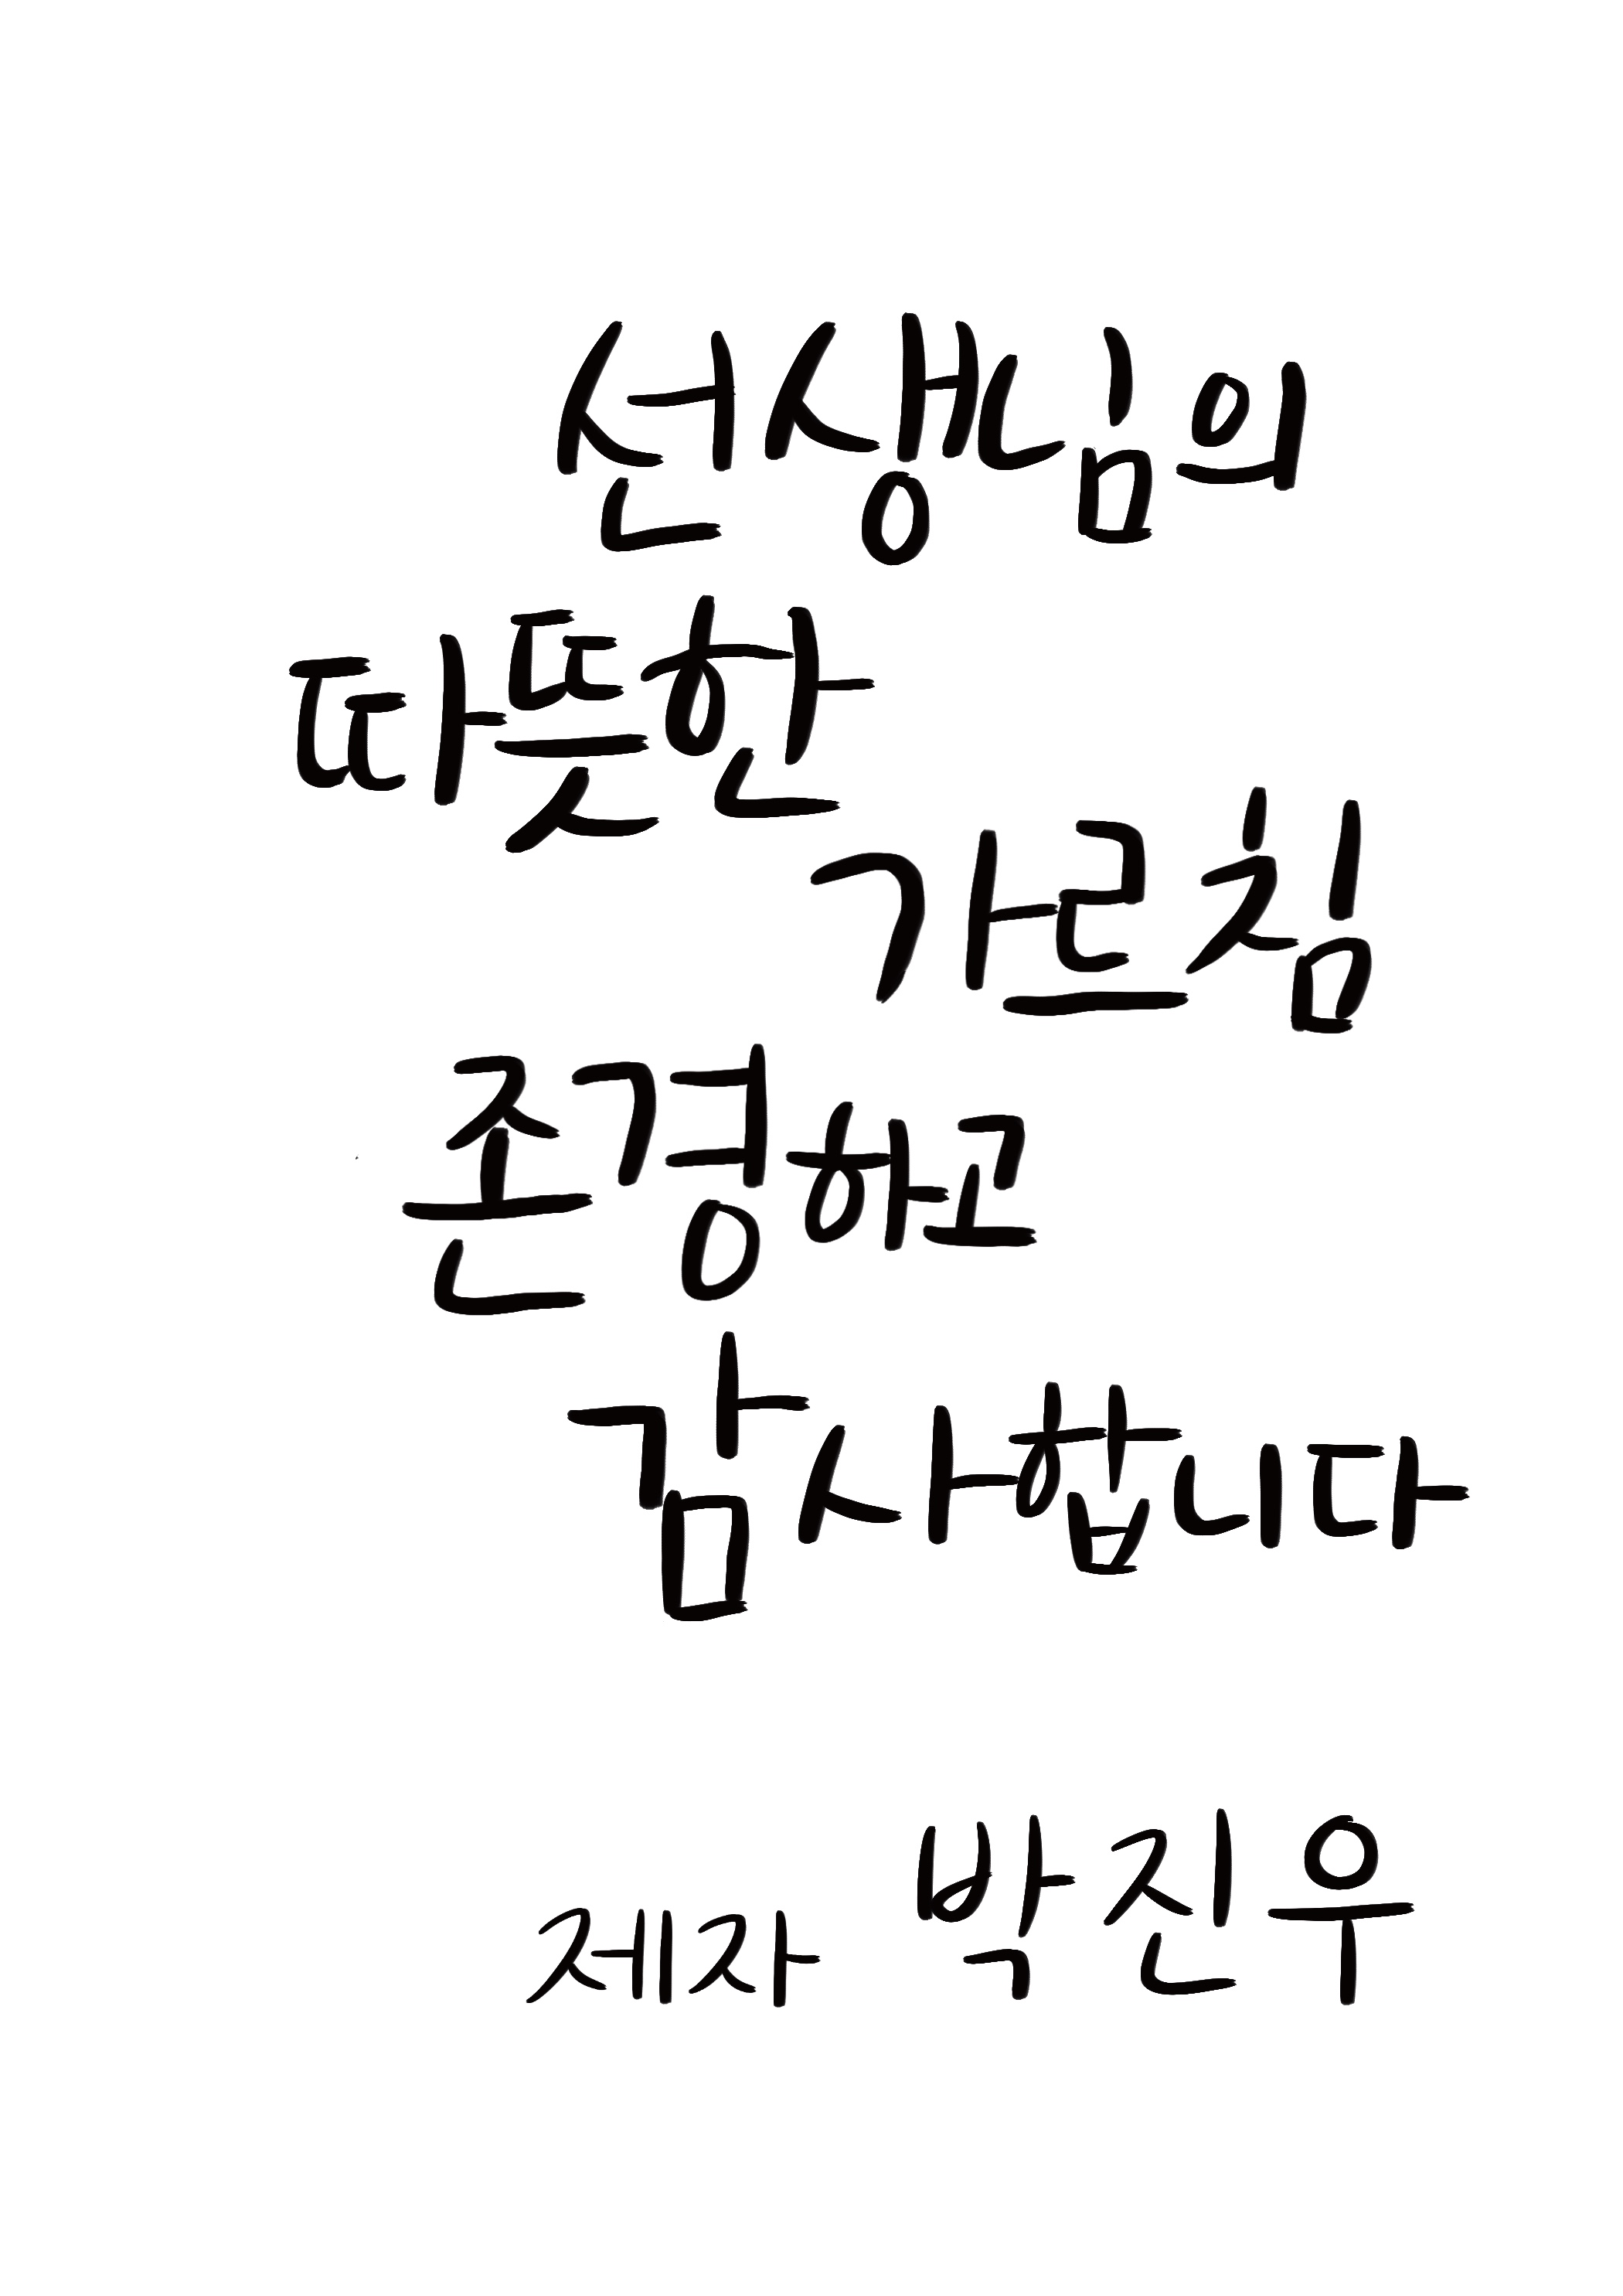 선생님의
따뜻한
가르침
존경하고
감사합니다
제자 박진우